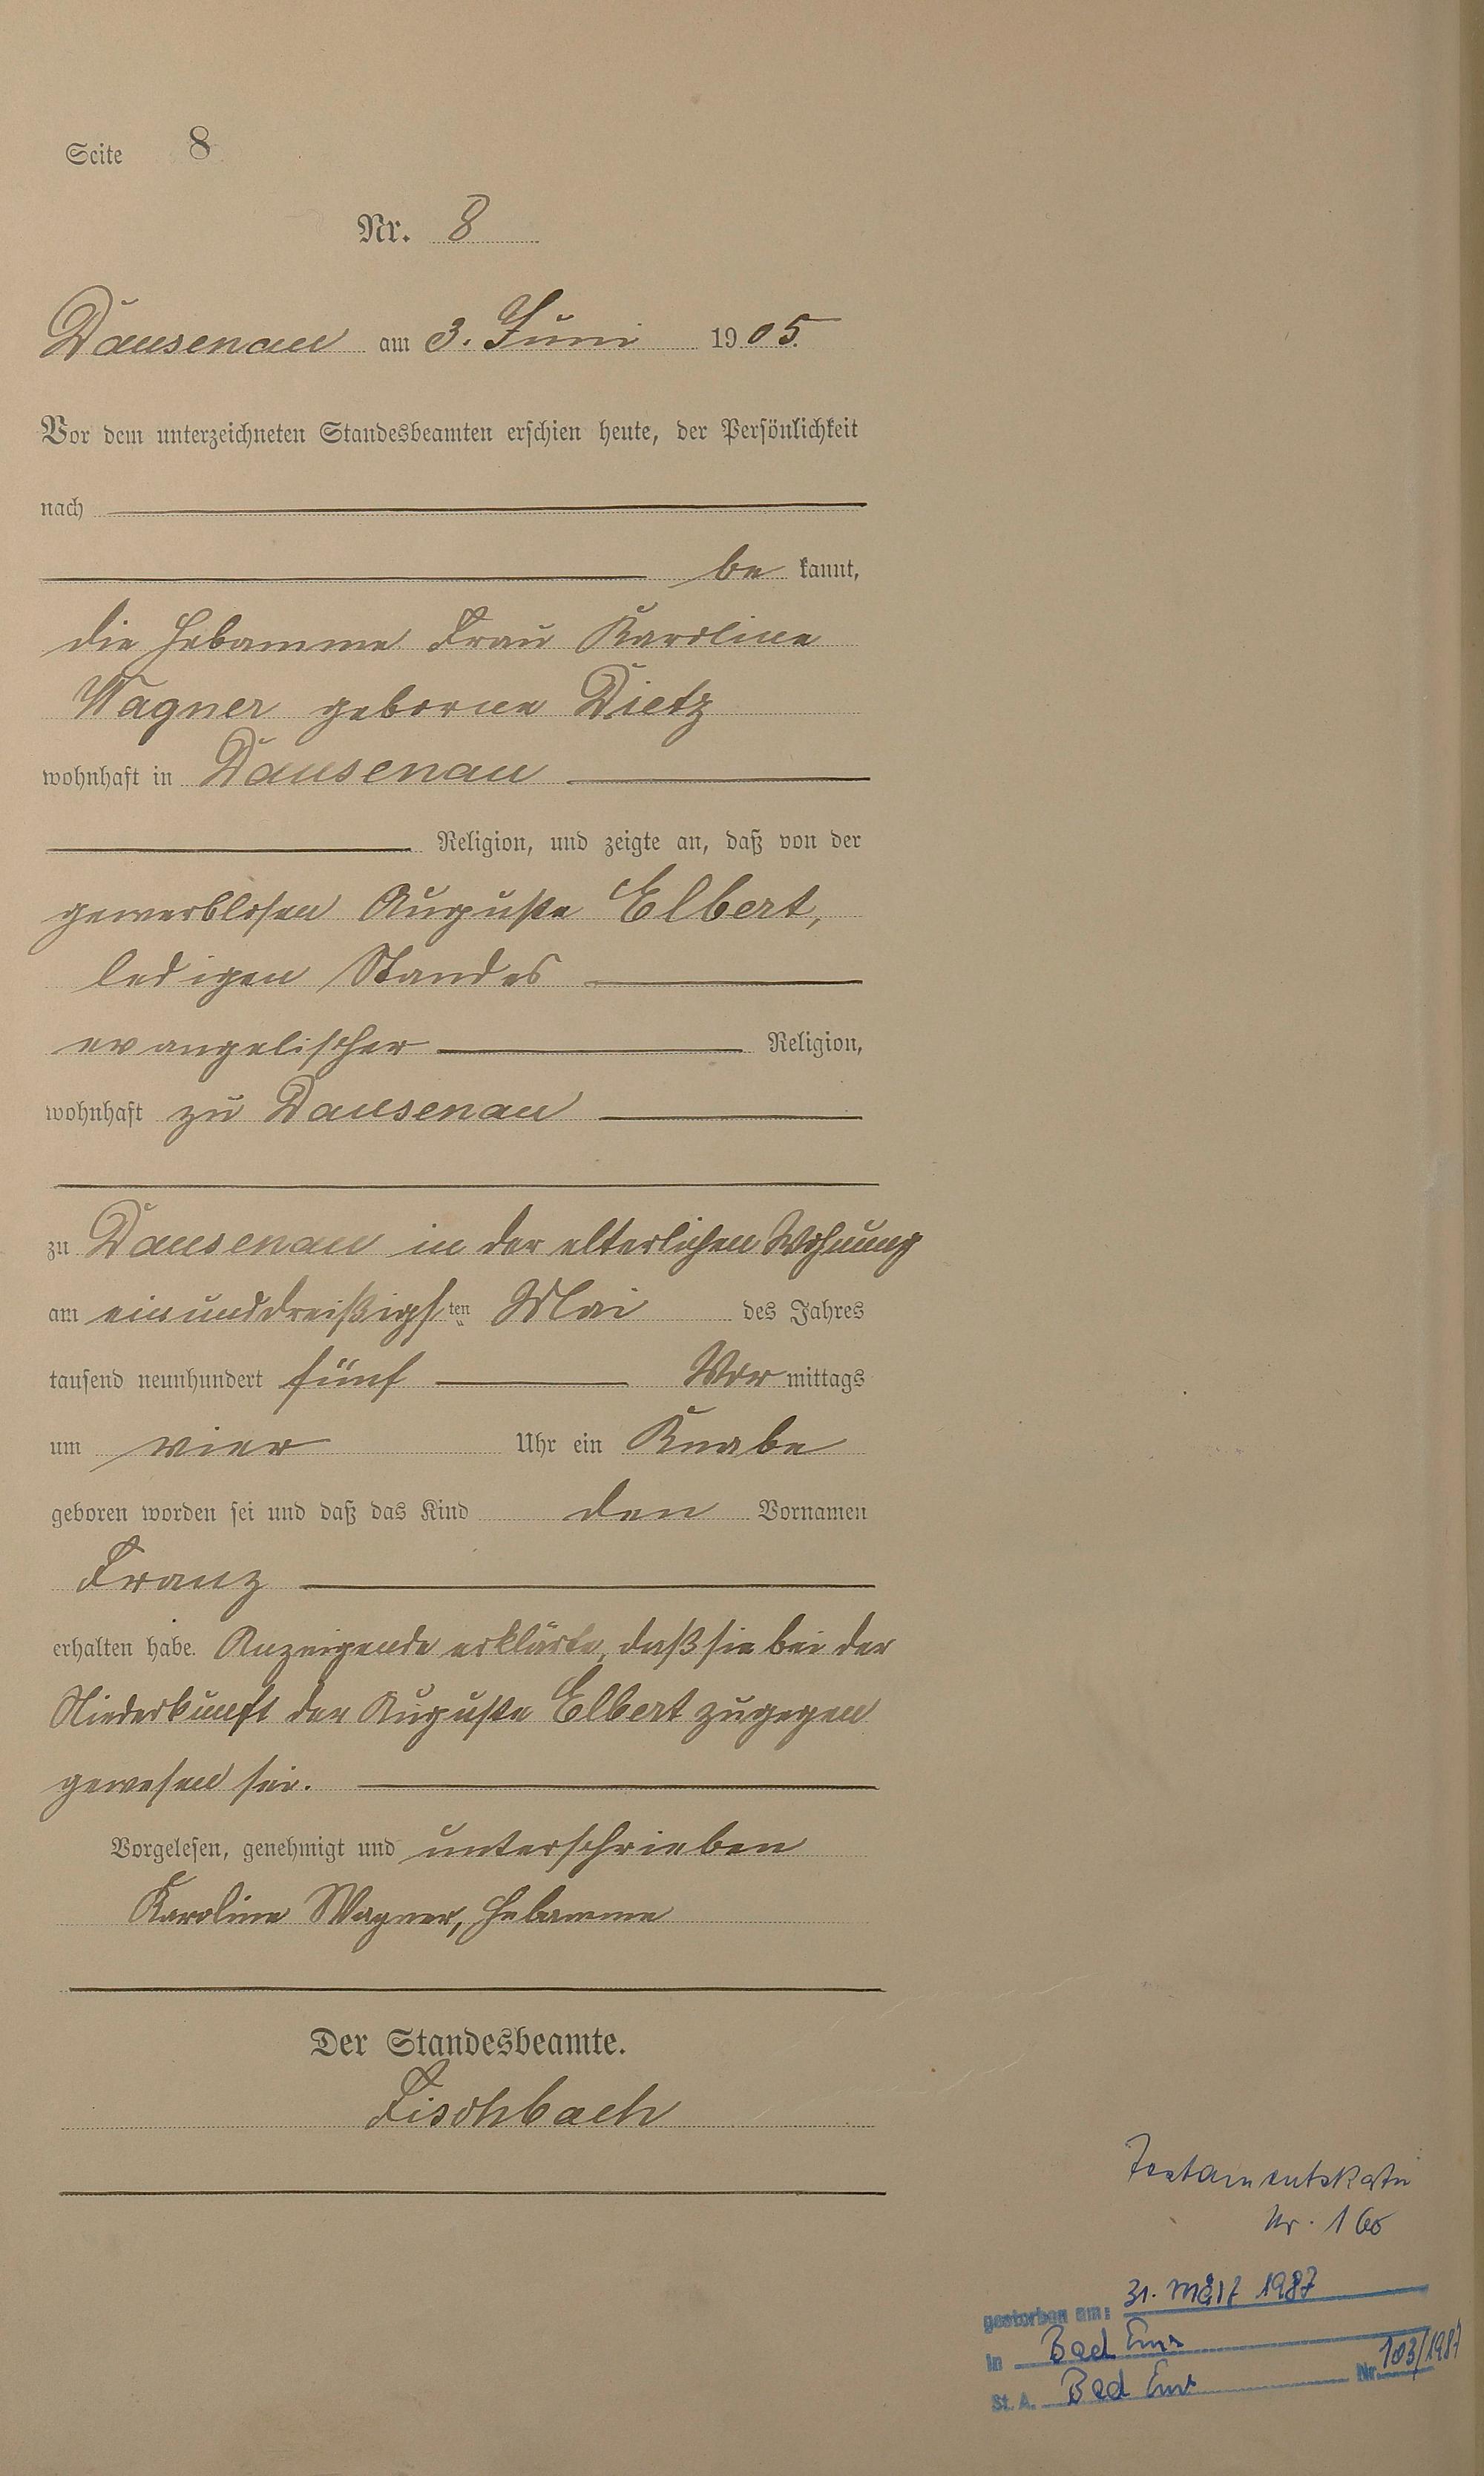 Seite 8
Nr. 8
Dausenau am 3. Juni 1905.
Vor dem unterzeichneten Standesbeamten erschien heute, der Persönlichkeit
nach
be kannt,
die Hebamme Frau Karoline
Wagner geborne Dietz
wohnhaft in Dausenau
Religion, und zeigte an, daß von der
gewerblosen Auguste Elbert,
ledigen Standes
evangelischer Religion,
wohnhaft zu Dausenau
zu Dausenau in der elterlichen Wohnung
am einunddreißigsten Mai des Jahres
tausend neunhundert fünf Vor mittags
um vier Uhr ein Knabe
geboren worden sei und daß das Kind den Vornamen
Franz
erhalten habe. Anzeigende erklärte, daß sie bei der
Niederkunft der Auguste Elbert zugegen
gewesen sei.
Vorgelesen, genehmigt und unterschrieben
Karoline Wagner, Hebamme
Der Standesbeamte.
Fischbach
Testamentskartei
Nr. 160
gestorben am: 31. März 1987
in Bad Ems
St. A. Bad Ems Nr. 103/1987